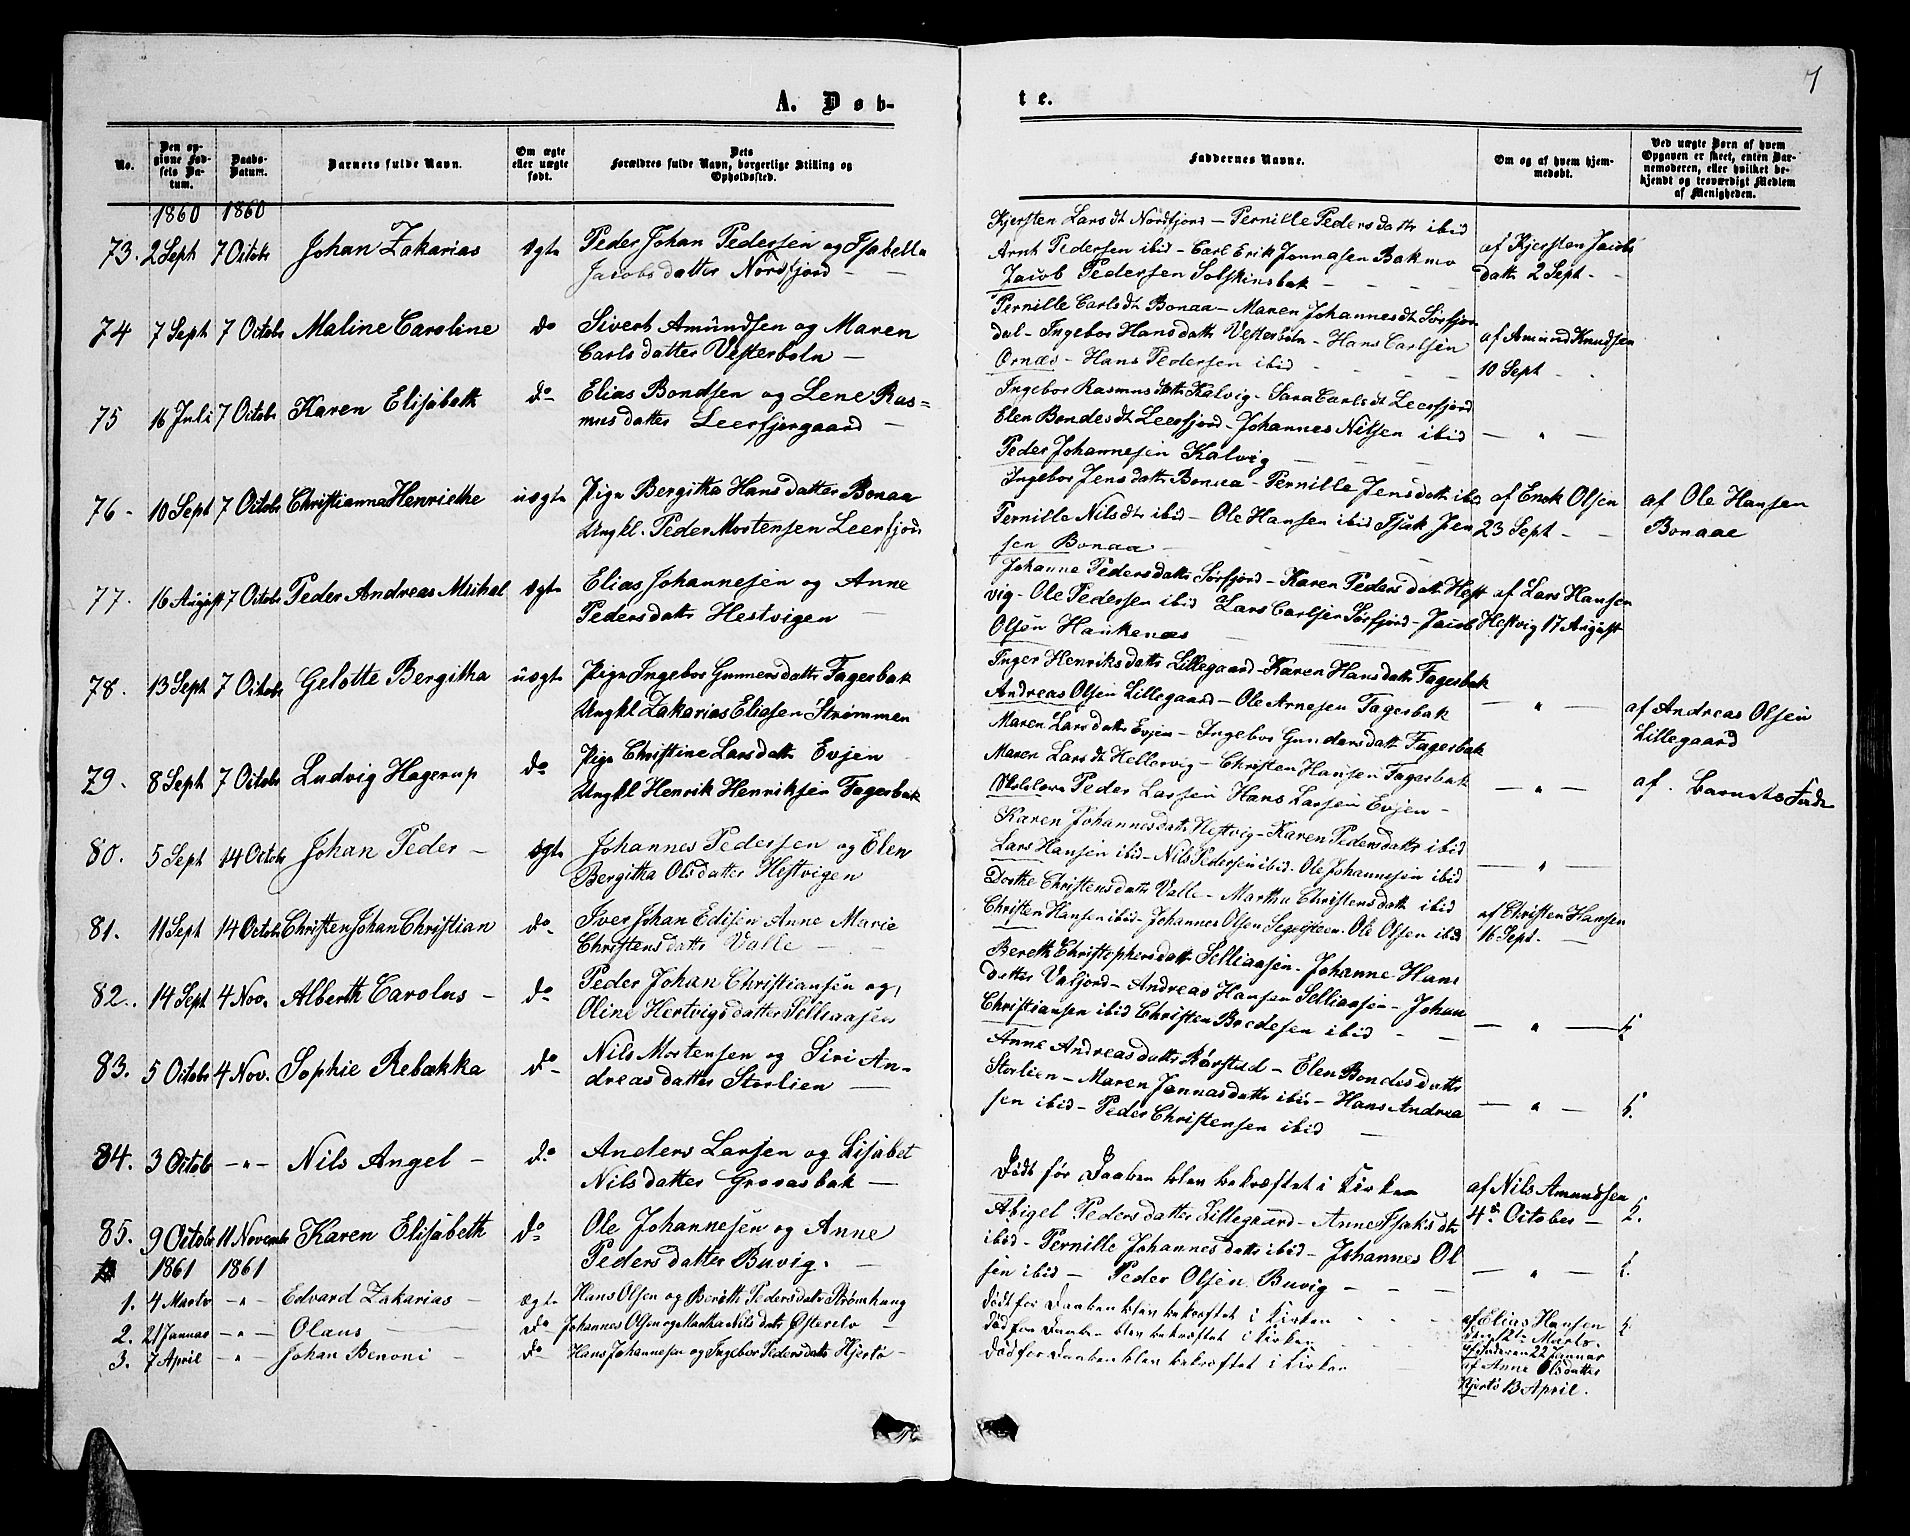 7
A. Døb-
te.
No.
Den opgivne Fødsels Datum.
Daabs-Datum.
Barnets fulde Navn.
Om ægte eller uægte født.
Dets Forældres fulde Navn, borgerlige Stilling og Opholdssted.
Faddernes Navne.
Om og af hvem hjemmedøbt.
Ved uægte Børn af hvem Opgaven er skeet, enten Barnemoderen, eller hvilket bekjendt og troværdigt Medlem af Menigheden.
1860 1860
73. 2 Sept 7 Octobr Johan Zakarias ægte
Peder Johan Pedersen og Isabella
Jacobsdatter Nordfjord —
Kjersten Larsdt Nordfjord — Pernille Pedersdatt ibid
Arnt Pedersen ibid — Carl Erik Jonnasen Bakmo
Jacob Pedersen Solskinsbak — — —
af Kjersten Jacobs
datt 2 Sept —
74 7 Sept 7 Octobr Maline Caroline do
Sivert Amundsen og Maren
Carlsdatter Vesterboln —
Pernille Carlsdt Bonaa — Maren Johannesdt Sørfjor
dal — Ingebor Hansdatt Vesterboln — Hans Carlsen
Ornæs — Hans Pedersen ibid — — —
af Amund Knudsen
10 Sept —
75 16 Juli 7 Octobr Karen Elisabeth do
Elias Bondsen og Lene Ras=
musdatter Leerfjorgaard —
Ingebor Rasmusdatt Kalvig — Sara Carlsdt Leerfjord
Elen Bondesdt Leerfjord — Johannes Nilsen ibid
Peder Johannesen Kalvig — — —
— " —
76 - 10 Sept 7 Octobr Christianna Henriethe uægte
Pige Bergitha Hansdatter Bonaa
Ungkl. Peder Mortensen Leerfjord
Ingebor Jensdatter Bonaa — Pernille Jensdatt ibid
Pernille Nilsdt ibid — Ole Hansen ibid Isak Jen
sen Bonaa —
af Enok Olsen
23 Sept —
af Ole Hansen
Bonaae
77. 16 August 7 Octobr Peder Andreas Mikal ægte
Elias Johannesen og Anne
Pedersdatt Hestvigen
Johanne Pedersdatt Sørfjord — Karen Pedersdatt Hest
vig — Ole Pedersen ibid Lars Carlsen Sørfjord — Jacob
Olsen Haukenæs —
af Lars Hansen
Hestvig 17 August
78. 13 Sept 7 Octobr Gelotte Bergitha uægte
Pige Ingebor Gunnersdatt Fagerbak
Ungkl Zakarias Eliasen Strømmen
Inger Henriksdatt Lillegaard — Karen Hansdatt Fagerbak
Andreas Olsen Lillegaard — Ole Arnesen Fagerbak
Maren Larsdatt Evjen — Ingebor Gundersdatt Fagerbak
— " —
af Andreas Olsen
Lillegaard
79. 8 Sept 7 Octobr Ludvig Hagerup do
Pige Christine Larsdatt Evjen
Ungkl Henrik Henriksen Fagerbak
Maren Larsdt Hellervig — Christen Hansen Fagerbak
Peder Larsen Hans Larsen Evjen —
— " —
af Barnets Fader
80. 5 Sept 14 Octobr Johan Peder — ægte
Johannes Pedersen og Elen
Bergitha Olsdatter Hestvigen
Karen Johannesdatt Hestvig — Karen Pedersdatts ibid
Lars Hansen ibid — Nils Pedersen ibid. Ole Johannesen ibid
— " —
81. 11 Sept 14 Octobr Christen Johan Christian do
Iver Johan Edisen Anne Marie
Christensdatt Valle —
Dorthe Christensdatt Valle — Martha Christensdatt ibid
Christen Hansen ibid — Johannes Olsen Segelsteen. Ole Olsen ibid
af Christen Hansen
16 Sept. —
82. 14 Sept 4 Nov. Alberth Carolus — do
Peder Johan Christiansen og
Oline Hertvigsdatter Selliaasen
Bereth Christephersdatt Selliaasen. Johanne Hans
datter Valjord — Andreas Hansen Selliaasen — Johan
Christiansen ibid Christen Bredesen ibid —
— " —
83. 5 Octobr 4 Nov. Sophie Rebækka do
Nils Mortensen og Siri An-
dreasdatter Storlien —
Anne Andreasdatt Rørstad — Elen Bondesdatt
Storlien — Maren Jonnasdatt ibid — Hans Andrea
sen ibid — Peder Christensen ibid —
— " —
84. 3 Octobr — " — Nils Angel — do
Anders Larsen og Lisabet
Nilsdatter Grovasbak —
Født før Daaben blev bekræftet i Kirken
af Nils Amundsen
4de October —
85. 9 Octobr 11 Novembr Karen Elisabeth do
Ole Johannesen og Anne
Pedersdatter Buvig. —
Abigel Pedersdatter Lillegaard — Anne Isaksdtr
ibid — Pernille Johannesdatt ibid — Johannes Ol
sen ibid — Peder Olsen Buvig —
— " —
1861 1861
1. 4 Marts — " — Edvard Zakarias — ægte
Hans Olsen og Bereth Pedersdatt Strømhaug
Født før Daaben blev bekræftet i Kirken
af Elias Hansen
Marts.
2. 21 Januar — " — Olaus — do
Johannes Olsen og Martha Nilsdatt Østerelv —
Død før Daaben blev bekræftet i Kirken
af Faderen 22 Januar
3. 7 April — " — Johan Benoni — do
Hans Johannesen og Ingebor Pedersdatt Hjertø —
Død før Daaben blev bekræftet i Kirken
af Anne Olsdatter
Hjertø 13 April.